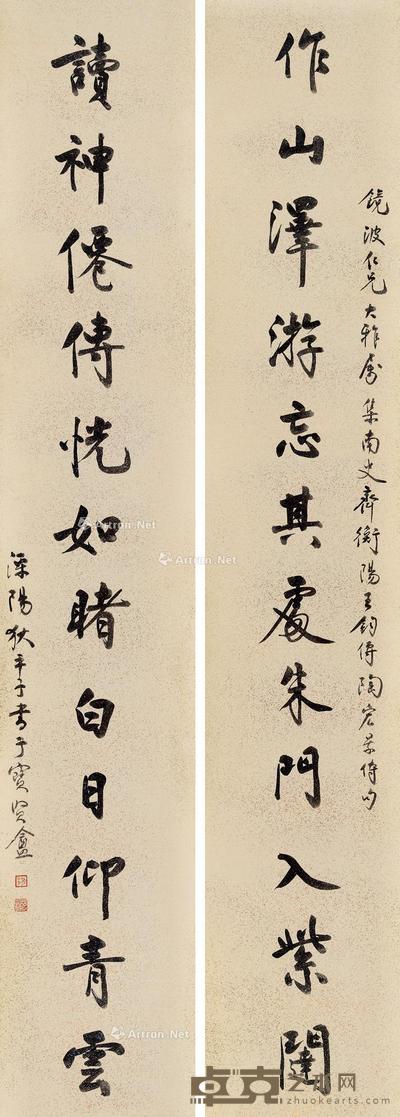 鏡波仁兄大雅屬集南史齊衡陽王鈞傳陶宏景傳句
作山澤游忘其處朱門入紫闥
讀神僊傳恍如睹白日仰青雲
溧陽狄平子書于寶賢盦
Artron.Net
Artron.Net
Artron.Net
Artron.Net
卓克艺术网
zhuokearts.com